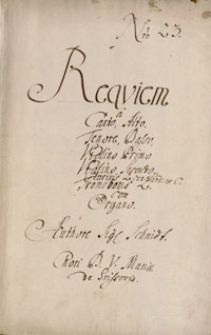 Nro 23.
Requiem
a
Canto, Alto,
Tenore, Basso,
Violino Primo
Violino Secundo
Trombonis 2.
Con
Organo.
Authore Sig: Schmidt.
Chori B. V. Mariæ
de